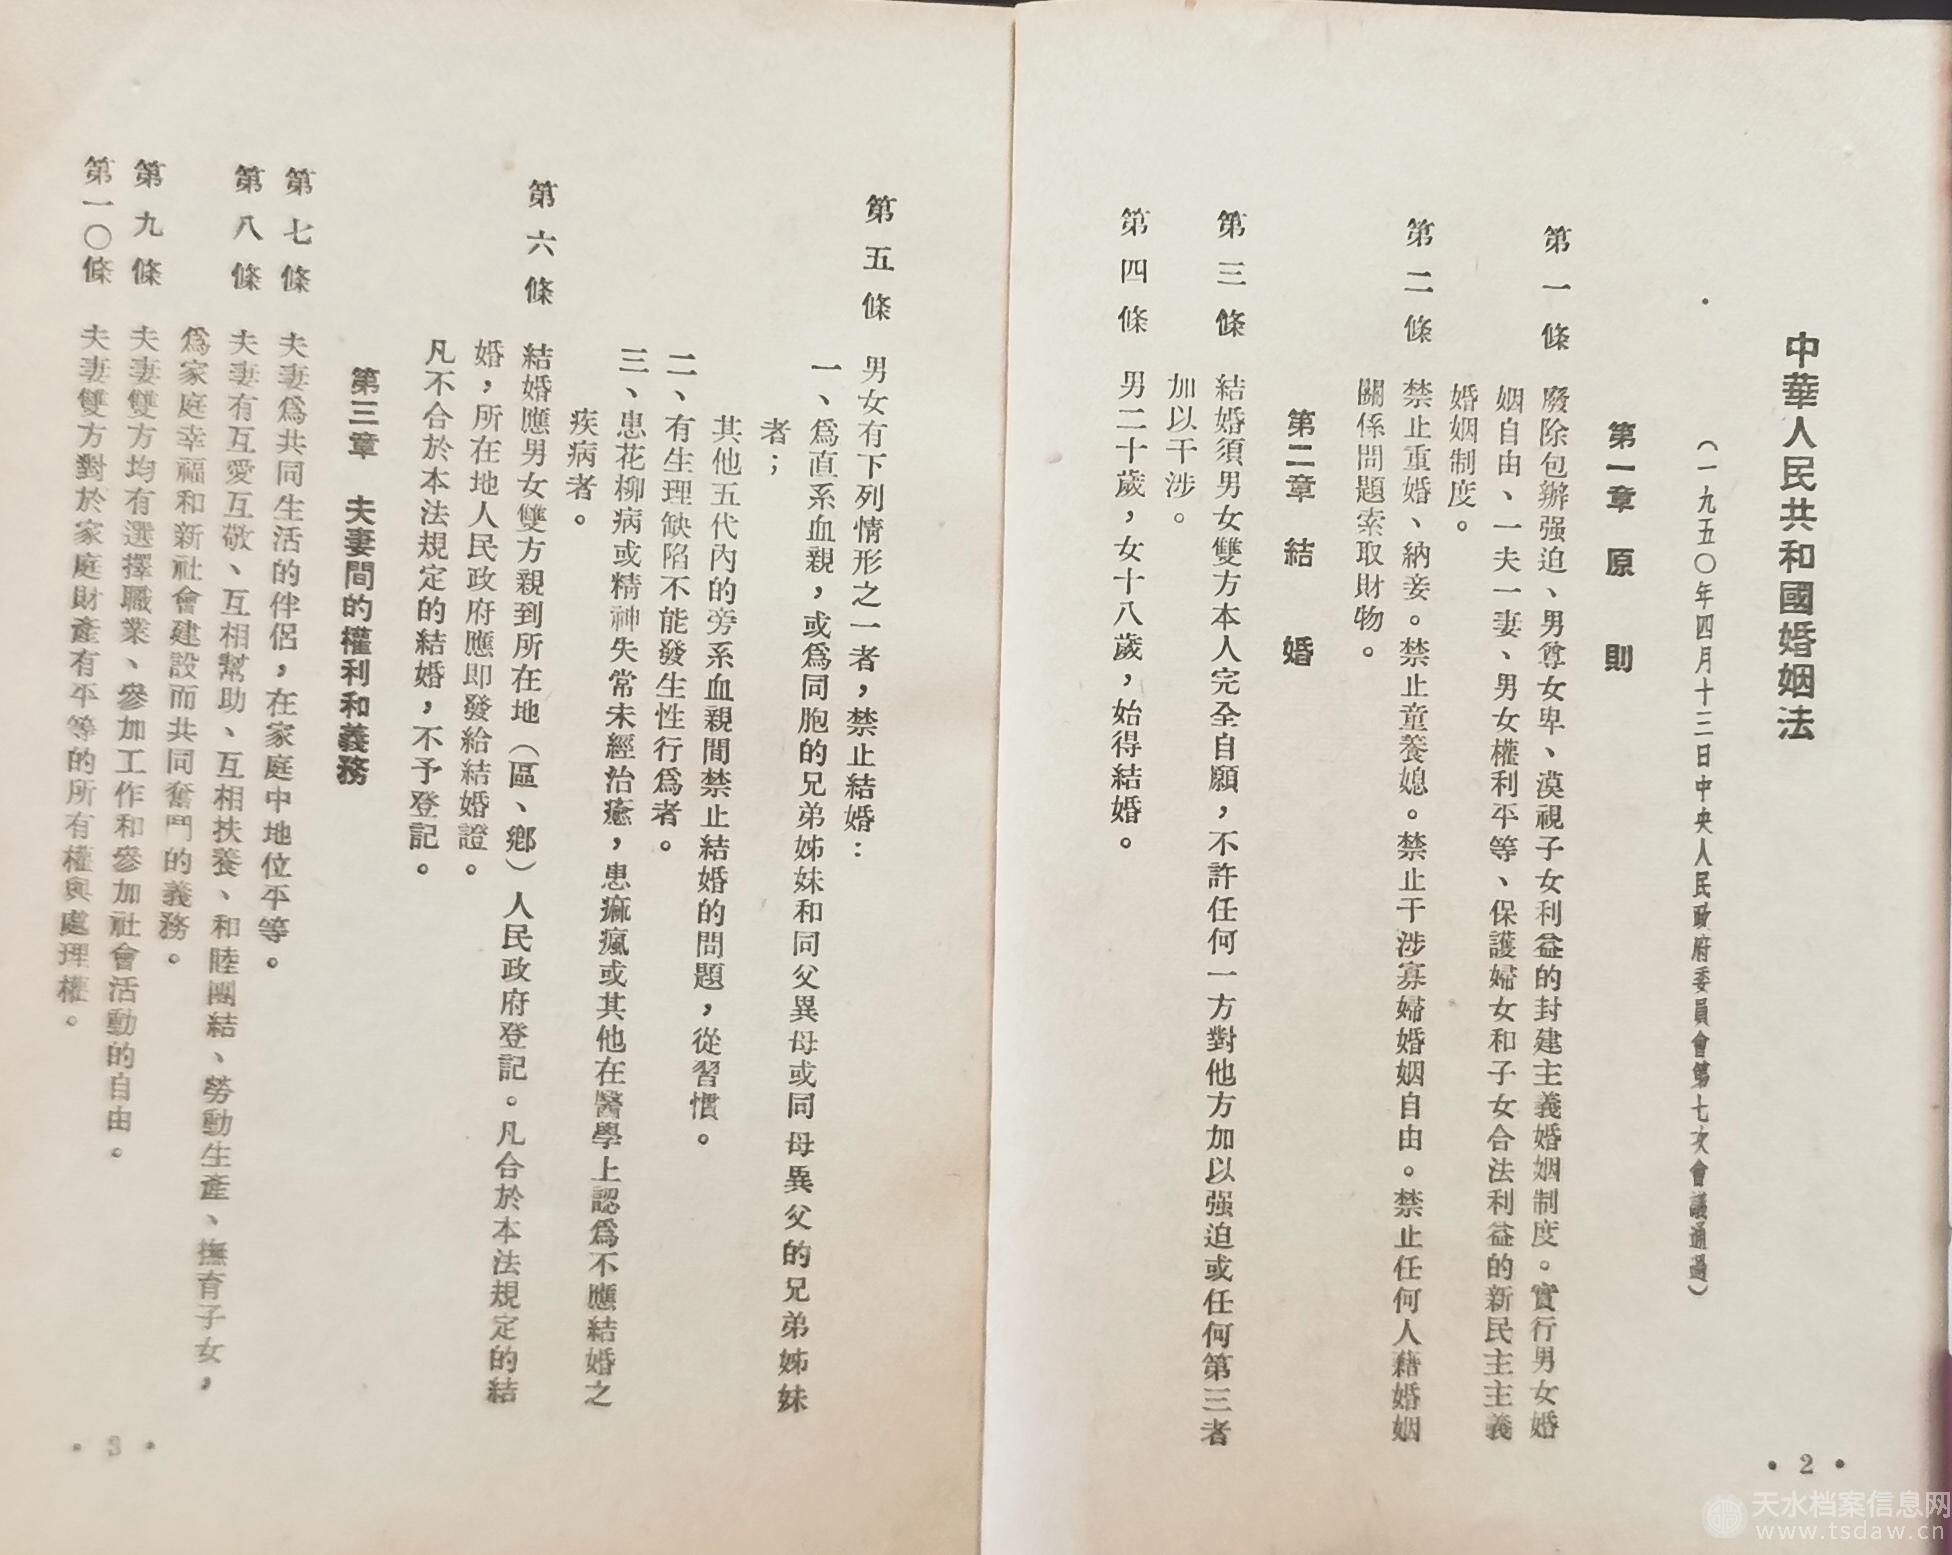 中華人民共和國婚姻法
（一九五〇年四月十三日中央人民政府委員會第七次會議通過）
第一章 原 則
第一條 廢除包辦强迫、男尊女卑、漠視子女利益的封建主義婚姻制度。實行男女婚
姻自由、一夫一妻、男女權利平等、保護婦女和子女合法利益的新民主主義
婚姻制度。
第二條 禁止重婚、納妾。禁止童養媳。禁止干涉寡婦婚姻自由。禁止任何人藉婚姻
關係問題索取財物。
第二章 結 婚
第三條 結婚須男女雙方本人完全自願，不許任何一方對他方加以强迫或任何第三者
加以干涉。
第四條 男二十歲，女十八歲，始得結婚。
· 2 ·
第五條 男女有下列情形之一者，禁止結婚：
一、爲直系血親，或爲同胞的兄弟姊妹和同父異母或同母異父的兄弟姊妹
者；
其他五代內的旁系血親間禁止結婚的問題，從習慣。
二、有生理缺陷不能發生性行爲者。
三、患花柳病或精神失常未經治癒，患痲瘋或其他在醫學上認爲不應結婚之
疾病者。
第六條 結婚應男女雙方親到所在地（區、鄉）人民政府登記。凡合於本法規定的結
婚，所在地人民政府應即發給結婚證。
凡不合於本法規定的結婚，不予登記。
第三章 夫妻間的權利和義務
第七條 夫妻爲共同生活的伴侶，在家庭中地位平等。
第八條 夫妻有互愛互敬、互相幫助、互相扶養、和睦團結、勞動生產、撫育子女，
爲家庭幸福和新社會建設而共同奮鬥的義務。
第九條 夫妻雙方均有選擇職業、參加工作和參加社會活動的自由。
第一〇條 夫妻雙方對於家庭財產有平等的所有權與處理權。
· 3 ·
天水档案信息网
www.tsdaw.cn